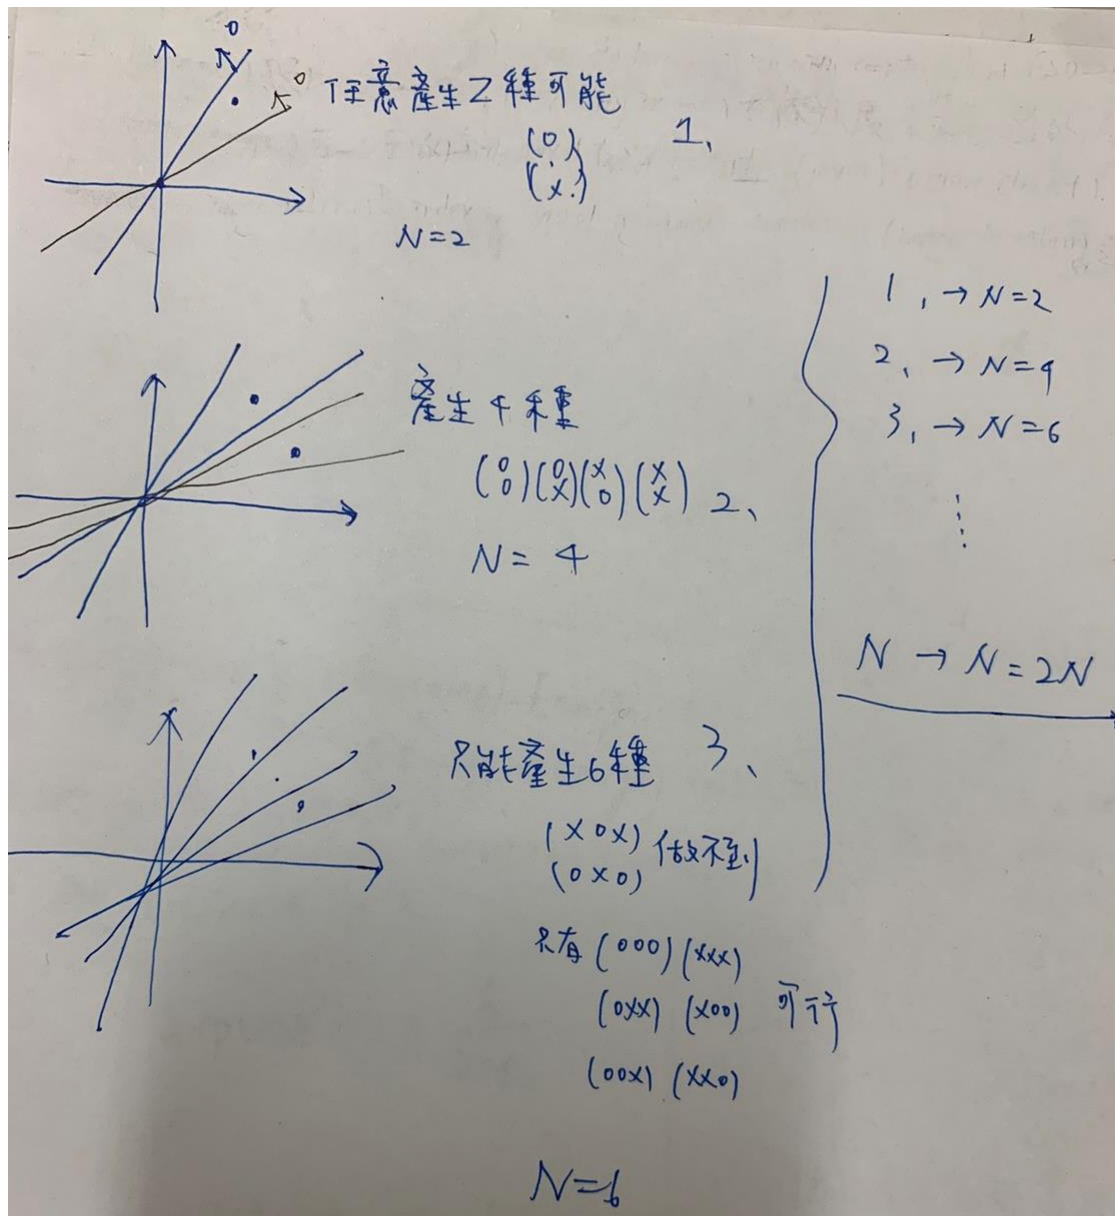 o
o
任意產生2種可能
(o)
(x)
1、
N=2
產生4種
(o o)(o x)(x o)(x x) 2、
N=4
只能產生6種 3、
(x o x) 做不到
(o x o)
只有 (o o o) (x x x)
(o x x) (x o o) 可行
(o o x) (x x o)
N=6
1、→ N=2
2、→ N=4
3、→ N=6
N → N=2N